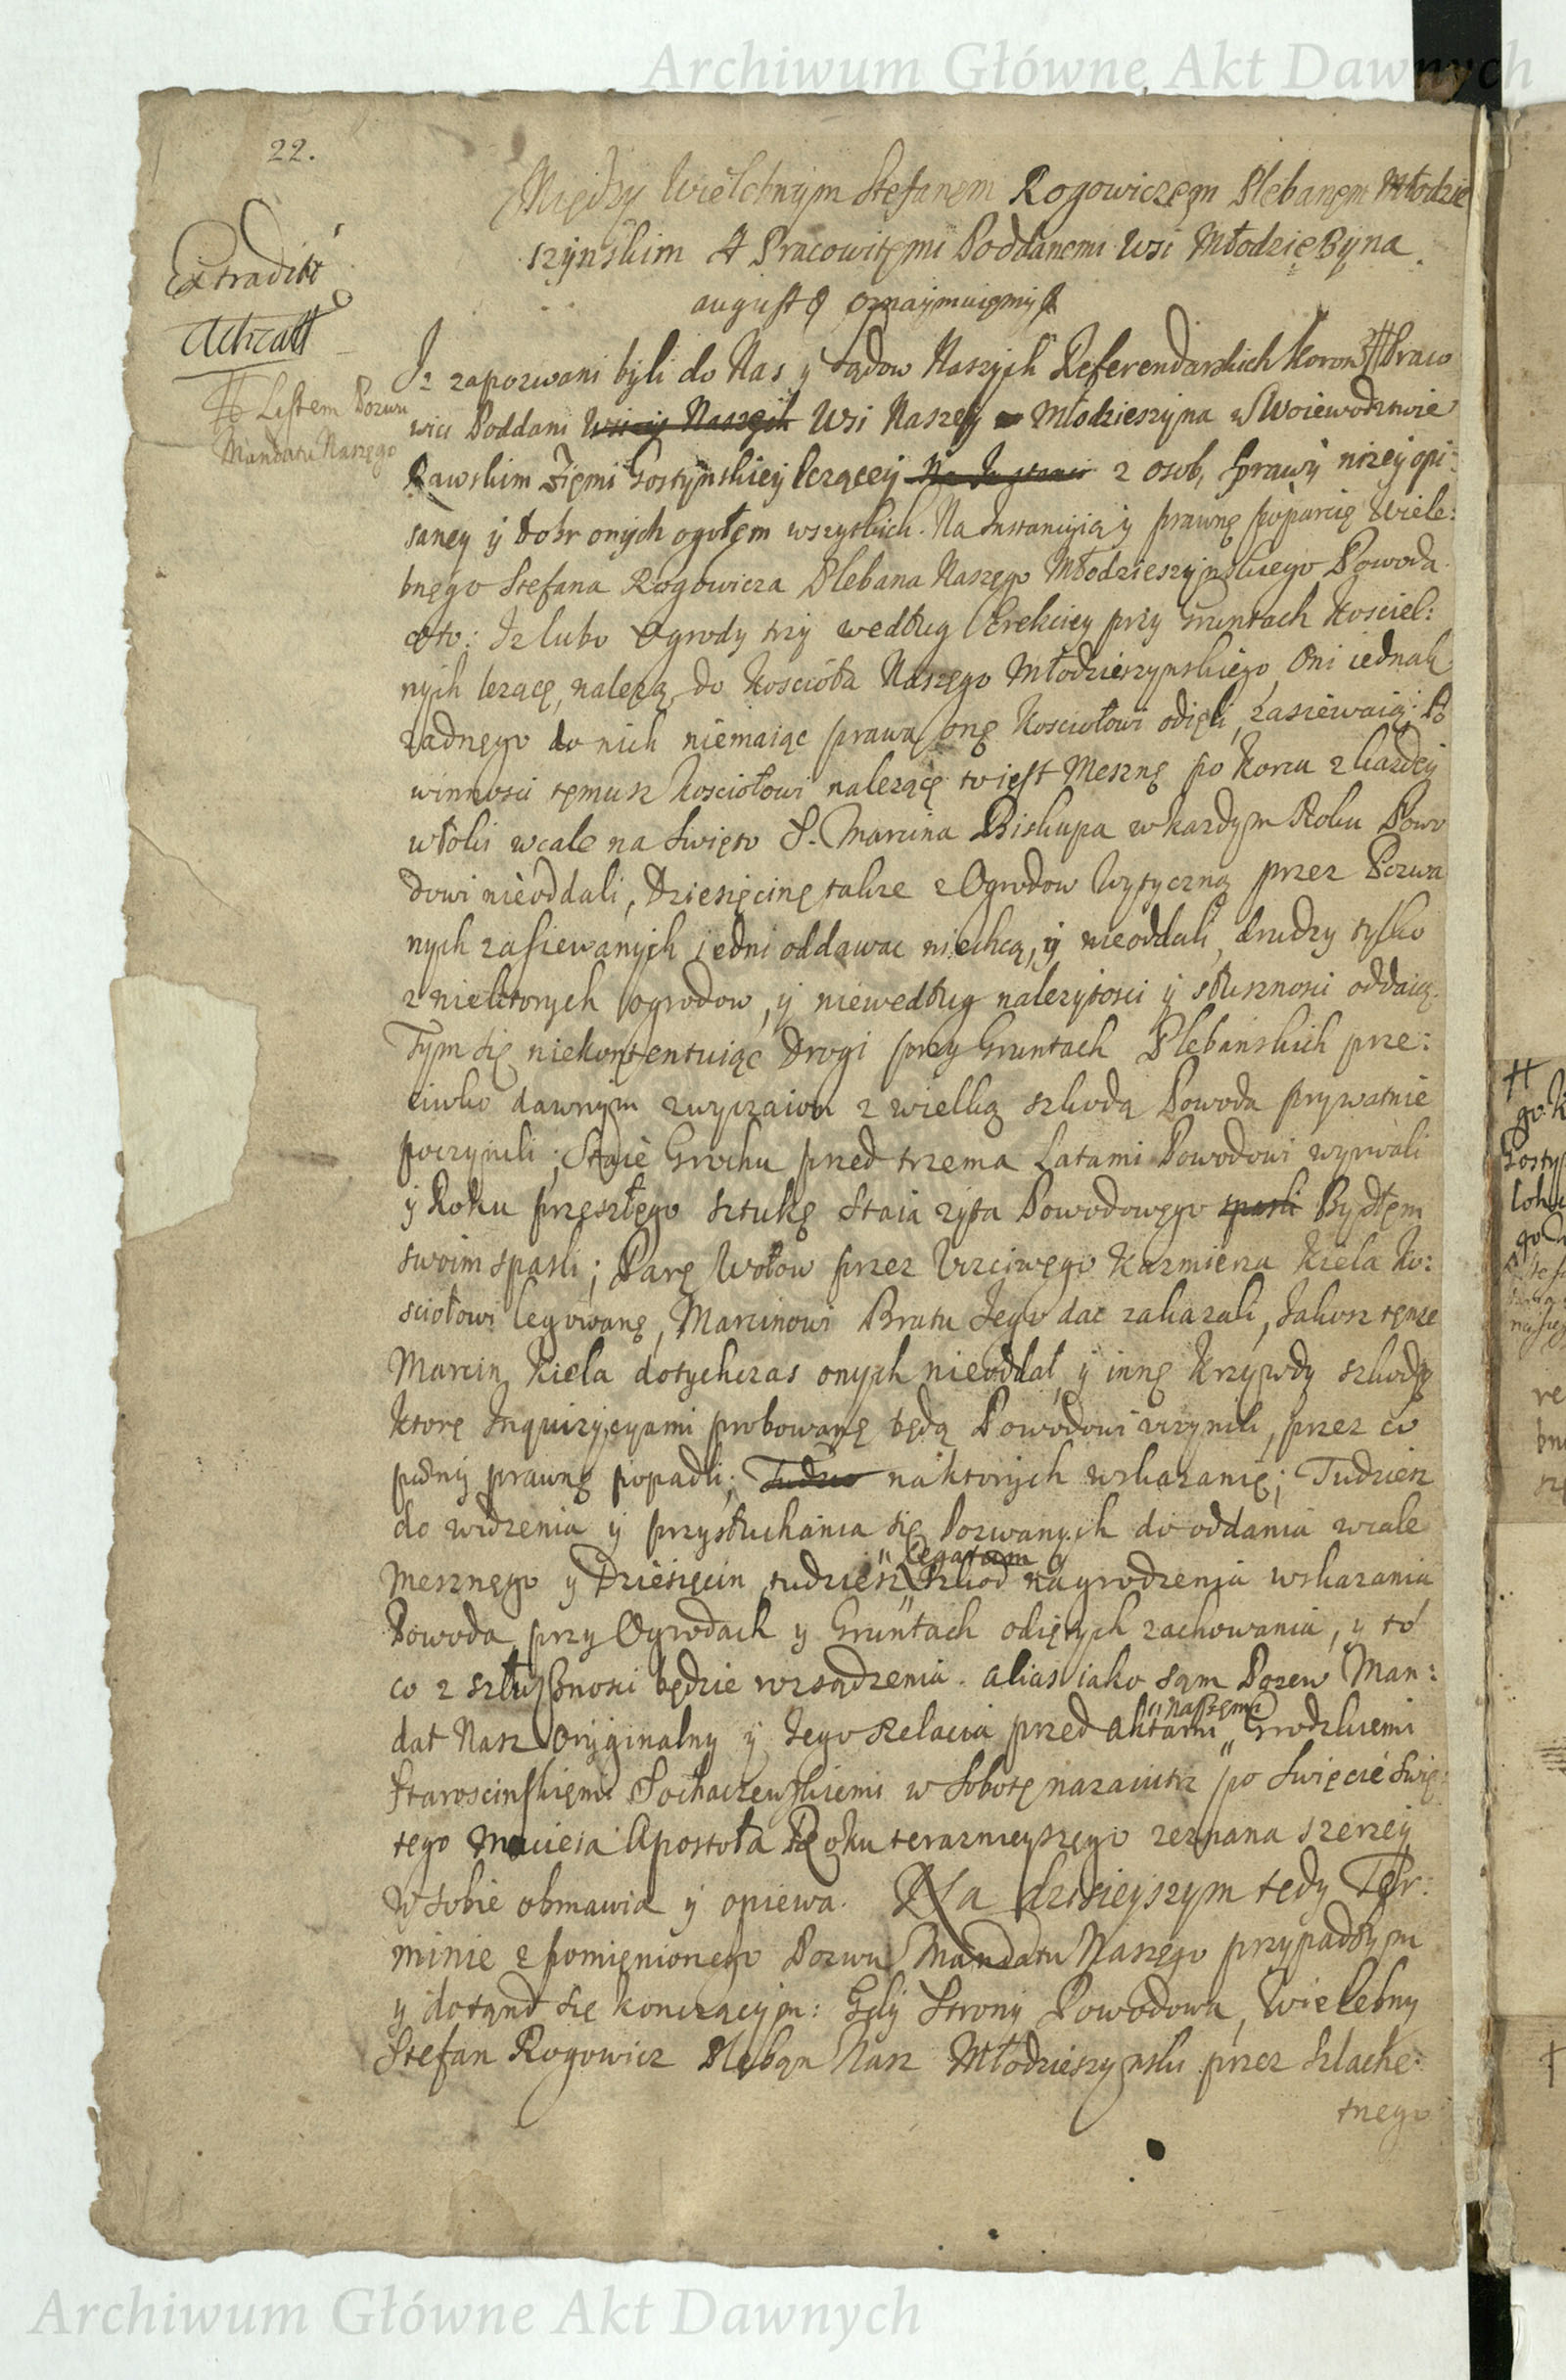 Archiwum Główne Akt Dawnych
22.
Między Wielebnym Stefanem Rogowiczem Plebanem Młodzie
szynskim A Pracowitemi Poddanemi Wsi Młodzieszyna
august oznaymuiemy
Extradit
Acticatt
# Listem Pozwu
Mandatu Naszego
Iz zapozwani byli do Nas y Sądow Naszych Referendarskich Koron # Praco
wici Poddani Wsi Naszey Młodzieszyna w Woiewodztwie
Rawskim Ziemi Gostynskiey lezącey z osob, sprawy nizey opi:
saney y dobr onych ogołem wszytkich. Na Instancyią y prawne poparcie Wiele:
bnego Stefana Rogowicza Plebana Naszego Młodzieszynskiego Powoda
oto: Iz lubo Ogrody trzy według Erekciey przy Gruntach Kosciel:
nych lezące, nalezą do Koscioła Naszego Młodzieszynskiego, Oni iednak
zadnego do nich niemaiąc prawa one Kosciołowi odieli, zasiewaią; Po
winnosci temusz Kosciołowi nalezące to iest Meszne po Korcu z kazdey
włoki wcale na Swięto S. Marcina Biskupa w kazdym Roku Powo
dowi nieoddali, Dziesięcinę takze z Ogrodow Wytyczną przez Pozwa
nych zasiewanych iedni oddawac niechcą, y nieoddali, drudzy tylko
z niektorych ogrodow, y niewedług nalezytosci y słusznosci oddaią.
Tym się niekontentuiąc Drogi przy Gruntach Plebanskich prze:
ciwko dawnym zwyczaiom z wielką szkodą Powoda prywatnie
poczynili; Staie Grochu przed trzema Latami Powodowi wyrwali
y Roku przeszłego sztukę Staia zyta Powodowego spasli Bydłem
swoim spasli; Parę Wołow przez Uczciwego Kazmierza Kiela Ko:
sciołowi legowane, Marcinowi Bratu Jego dac zakazali, Jakosz tenze
Marcin Kiela dotychczas onych nieoddał, y inne Krzywdy szkody
Ktore Inquizycyami probowane będą Powodowi uczynili, przez co
w winy prawne popadli; Tudzie na ktorych wskazanie; Tudziesz
do widzenia y przysłuchania się Pozwanych do oddania wcale
Mesznego y Dziesięcin, tudziesz Legatam y Szkod nagrodzenia wskazania
Powoda przy Ogrodach y Gruntach odiętych zachowania, y to
co z słusznosci będzie rozsądzenia. alias iako sam Pozew Man:
dat Nasz Oryginalny y Jego Relacia przed Aktami Naszemi Grodzkiemi
Staroscinskiemi Sochaczewskiemi w Sobotę nazaiutrz po Swięcie Swię:
tego Macieia Apostoła Roku terazneyszego zeznana szerzey
w sobie obmawia y opiewa. Na dzisieyszym tedy Ter:
minie z pomienionego Pozwu Mandatu Naszego przypadłym
y dotąnd się konczącym: Gdy Strony Powodowa, Wielebny
Stefan Rogowicz Pleban Nasz Młodzieszynski przez Szlache:
tnego
Archiwum Główne Akt Dawnych